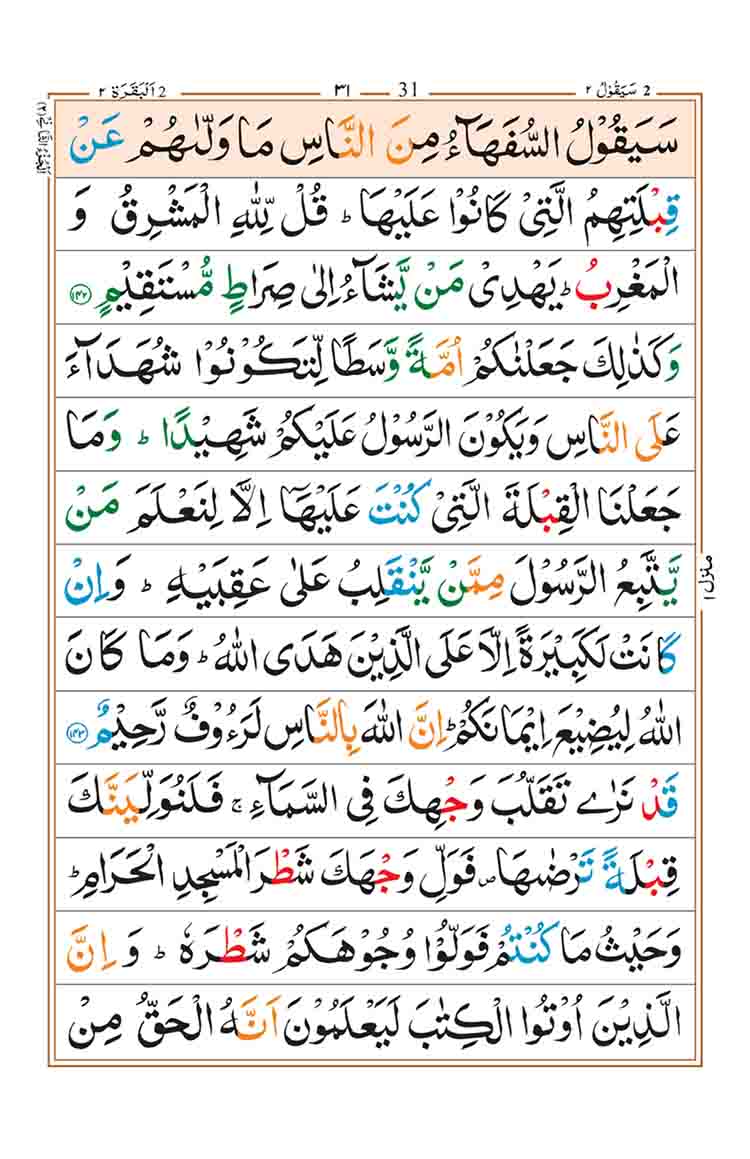 2 سَيَقُوْلُ ٢ 31 ٣١ 2 اَلْبَقَرَة ٢
سَيَقُوْلُ السُّفَهَآءُ مِنَ النَّاسِ مَا وَلّٰىهُمْ عَنْ
قِبْلَتِهِمُ الَّتِىْ كَانُوْا عَلَيْهَا ؕ قُلْ لِّلّٰهِ الْمَشْرِقُ وَ
الْمَغْرِبُ ؕ يَهْدِىْ مَنْ يَّشَآءُ اِلٰى صِرَاطٍ مُّسْتَقِيْمٍ ۝۱۴۲
وَكَذٰلِكَ جَعَلْنٰكُمْ اُمَّةً وَّسَطًا لِّتَكُوْنُوْا شُهَدَآءَ
عَلَى النَّاسِ وَيَكُوْنَ الرَّسُوْلُ عَلَيْكُمْ شَهِيْدًا ؕ وَمَا
جَعَلْنَا الْقِبْلَةَ الَّتِىْ كُنْتَ عَلَيْهَآ اِلَّا لِنَعْلَمَ مَنْ
يَّتَّبِعُ الرَّسُوْلَ مِمَّنْ يَّنْقَلِبُ عَلٰى عَقِبَيْهِ ؕ وَاِنْ
كَانَتْ لَكَبِيْرَةً اِلَّا عَلَى الَّذِيْنَ هَدَى اللّٰهُ ؕ وَمَا كَانَ
اللّٰهُ لِيُضِيْعَ اِيْمَانَكُمْ ؕ اِنَّ اللّٰهَ بِالنَّاسِ لَرَءُوْفٌ رَّحِيْمٌ ۝۱۴۳
قَدْ نَرٰى تَقَلُّبَ وَجْهِكَ فِى السَّمَآءِ ۚ فَلَنُوَلِّيَنَّكَ
قِبْلَةً تَرْضٰىهَا ۪ فَوَلِّ وَجْهَكَ شَطْرَ الْمَسْجِدِ الْحَرَامِ ؕ
وَحَيْثُ مَا كُنْتُمْ فَوَلُّوْا وُجُوْهَكُمْ شَطْرَهٗ ؕ وَ اِنَّ
الَّذِيْنَ اُوْتُوا الْكِتٰبَ لَيَعْلَمُوْنَ اَنَّهُ الْحَقُّ مِنْ
منزل ١